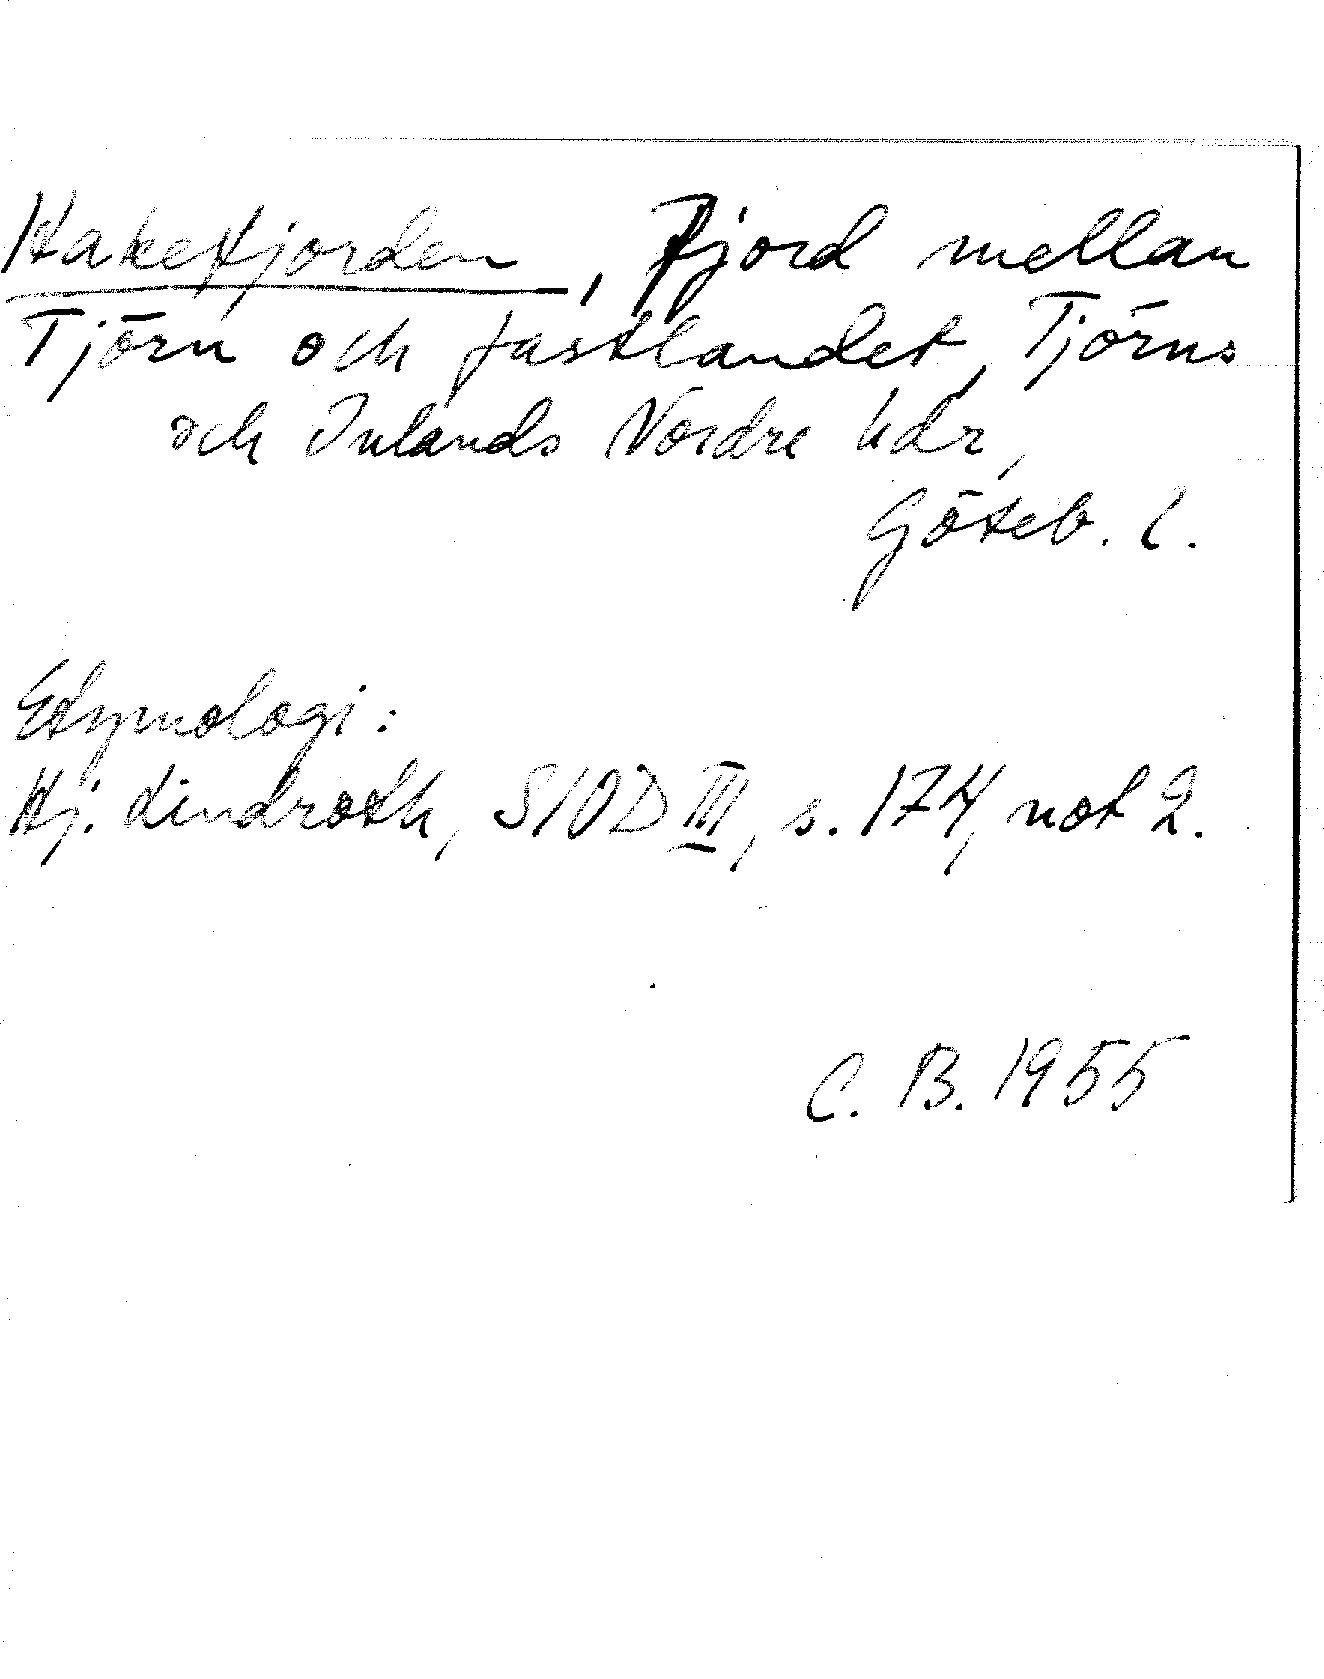 Hakefjorden, Fjord mellan
Tjörn och fastlandet, Tjörns
och Inlands Nordre hdr,
Göteb. l.
Etymologi:
Hj. Lindroth, SIOD III, s. 174, not 2.
C. B. 1955